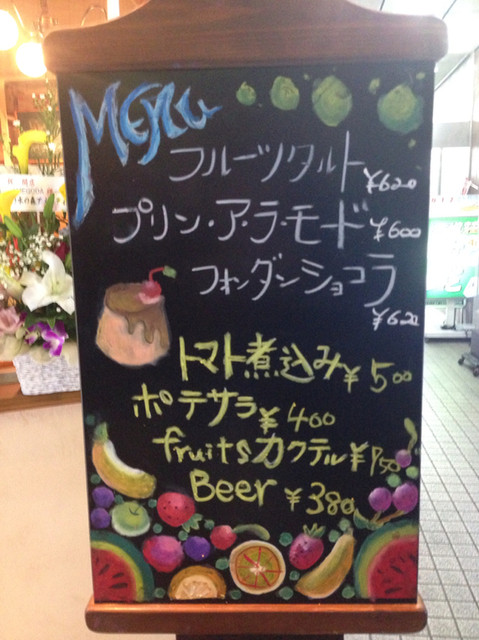 MENU
フルーツタルト ¥620
プリン・ア・ラ・モード ¥600
フォンダンショコラ ¥620
トマト煮込み ¥500
ポテサラ ¥400
fruitsカクテル ¥750
Beer ¥380